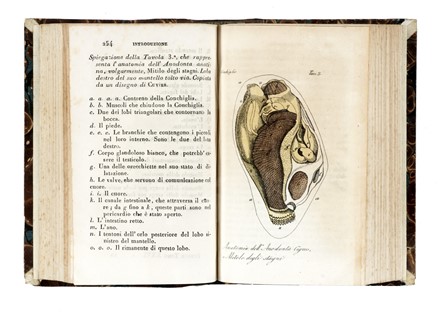 254 INTRODUZIONE
Spiegazione della Tavola 3.ª, che rappre-
senta l'anatomia dell'Anodonta anati-
na, volgarmente, Mitolo degli stagni. Lobo
destro del suo mantello tolto via. Copiata
da un disegno di CUVIER.
a. a. a. a. Contorno della Conchiglia.
b. b. Muscoli che chiudono la Conchiglia.
c. Due dei lobi triangolari che contornano la
bocca.
d. Il piede.
e. e. e. Le branchie che contengono i piccoli
nel loro interno. Sono le due del lobo
destro.
f. Corpo glandoloso bianco, che potrebb' es-
sere il testicolo.
g. Una delle orecchiette nel suo stato di di-
latazione.
h. Le valve, che servono di comunicazione col
cuore.
i. i. Il cuore.
k. Il canale intestinale, che attraversa il cuo-
re; da g fino a k, queste parti sono nel
pericardio che è stato aperto.
l. L'intestino retto.
m. L'ano.
n. I tentoni dell'orlo posteriore del lobo si-
nistro del mantello.
o. o. o. Il rimanente di questo lobo.
Tav. 3.
Anatomia dell'Anodonta Cigno,
Mitolo degli stagni